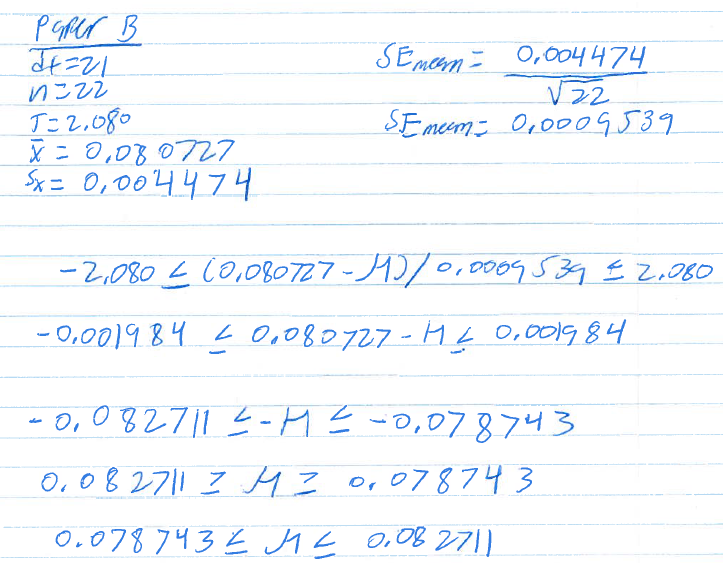 Paper B
df=21
n=22
T=2.080
x̄ = 0.080727
Sx = 0.004474
SEmean = 0.004474 / √22
SEmean = 0.0009539
-2.080 ≤ (0.080727-M)/0.0009539 ≤ 2.080
-0.001984 ≤ 0.080727-M ≤ 0.001984
-0.082711 ≤ -M ≤ -0.078743
0.082711 ≥ M ≥ 0.078743
0.078743 ≤ M ≤ 0.082711